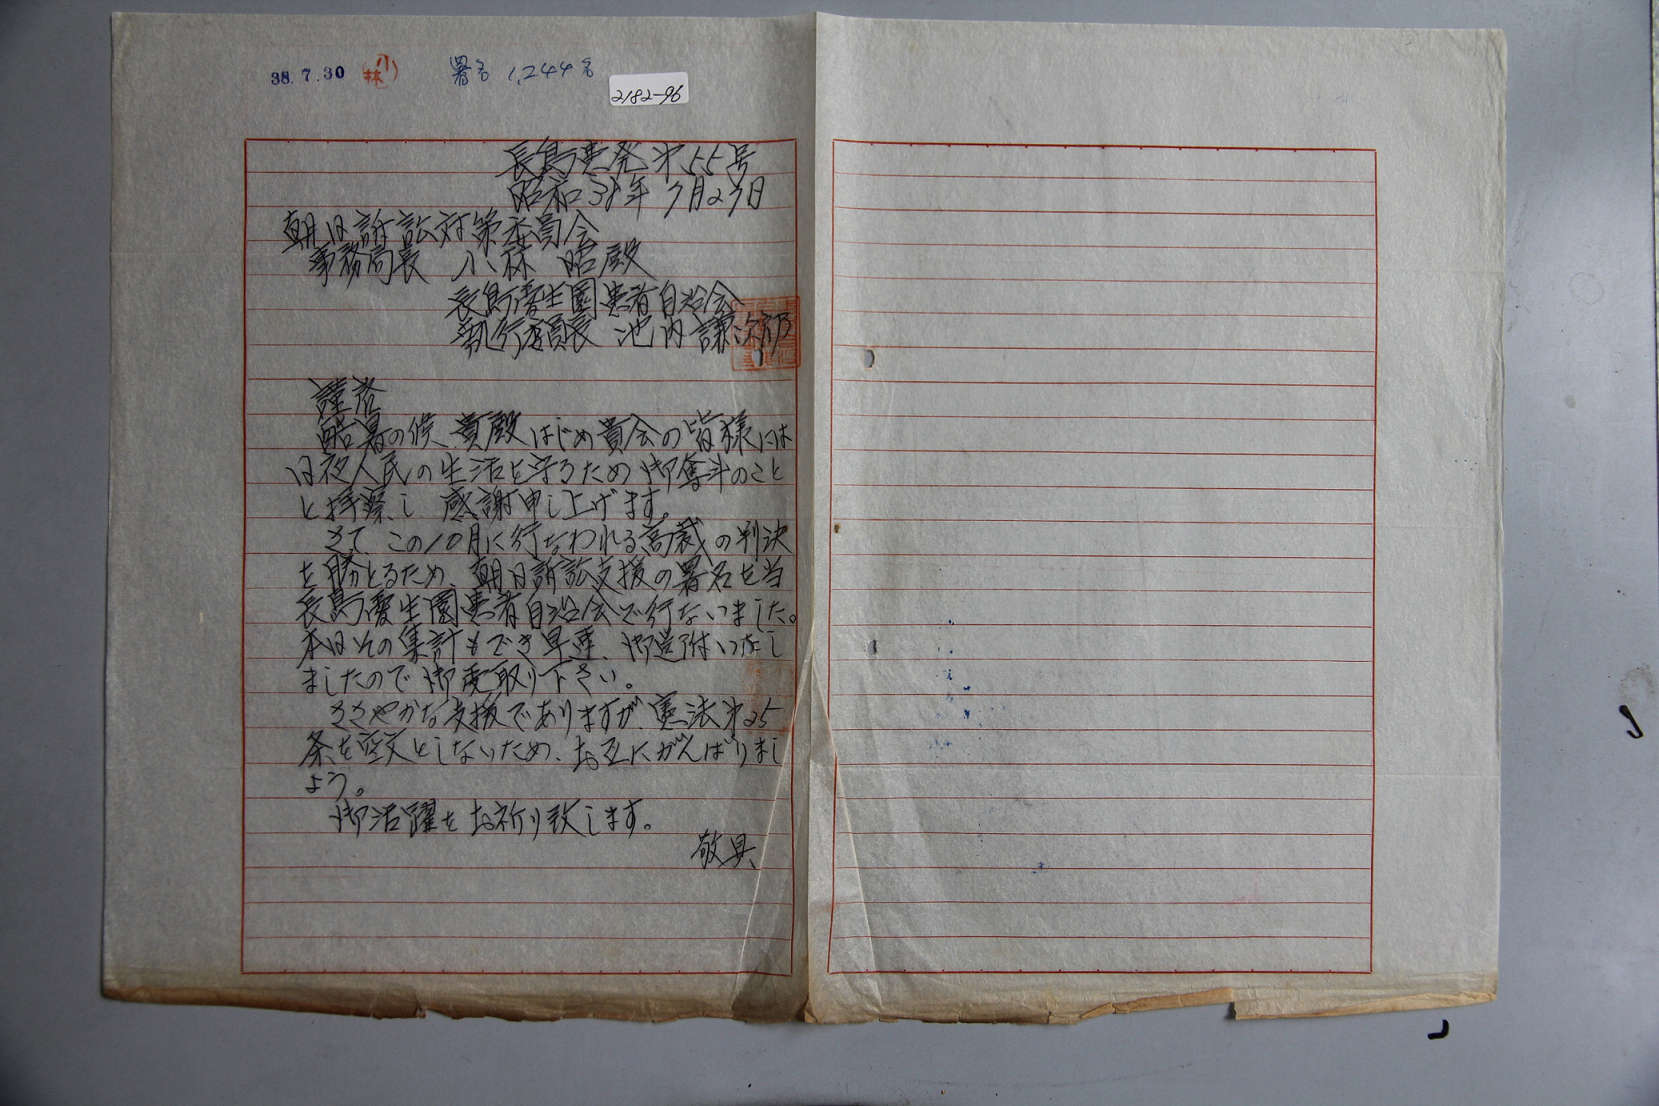 38.7.30 小林 署名 1,244名
2182-96
長島患発第55号
昭和38年7月27日
朝日訴訟対策委員会
事務局長 小林 昭殿
長島愛生園患者自治会
執行委員長 池内謙次郎
謹啓
酷暑の候、貴殿はじめ貴会の皆様には
日夜人民の生活を守るため御奮斗のこと
と拝察し 感謝申し上げます。
さて、この10月に行なわれる高裁の判決
を勝とるため、朝日訴訟支援の署名を当
長島愛生園患者自治会で行ないました。
本日その集計もでき早速、御送附いたし
ましたので御受取り下さい。
ささやかな支援でありますが、憲法第25
条を空文としないため、お互にがんばりまし
ょう。
御活躍をお祈り致します。
敬具